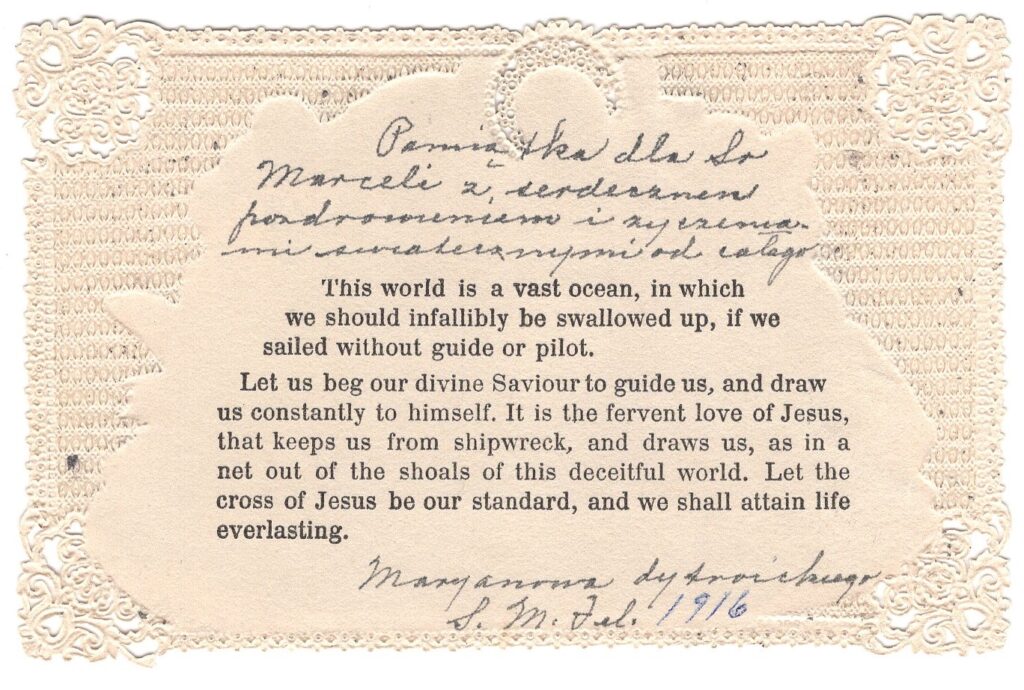 Pamiątka dla Sr
Marceli z serdecznem
pozdrowieniem i zyczenia-
mi swiatecznymi od całego
This world is a vast ocean, in which
we should infallibly be swallowed up, if we
sailed without guide or pilot.
Let us beg our divine Saviour to guide us, and draw
us constantly to himself. It is the fervent love of Jesus,
that keeps us from shipwreck, and draws us, as in a
net out of the shoals of this deceitful world. Let the
cross of Jesus be our standard, and we shall attain life
everlasting.
Maryanowa dytroickiego
S. M. Fel. 1916